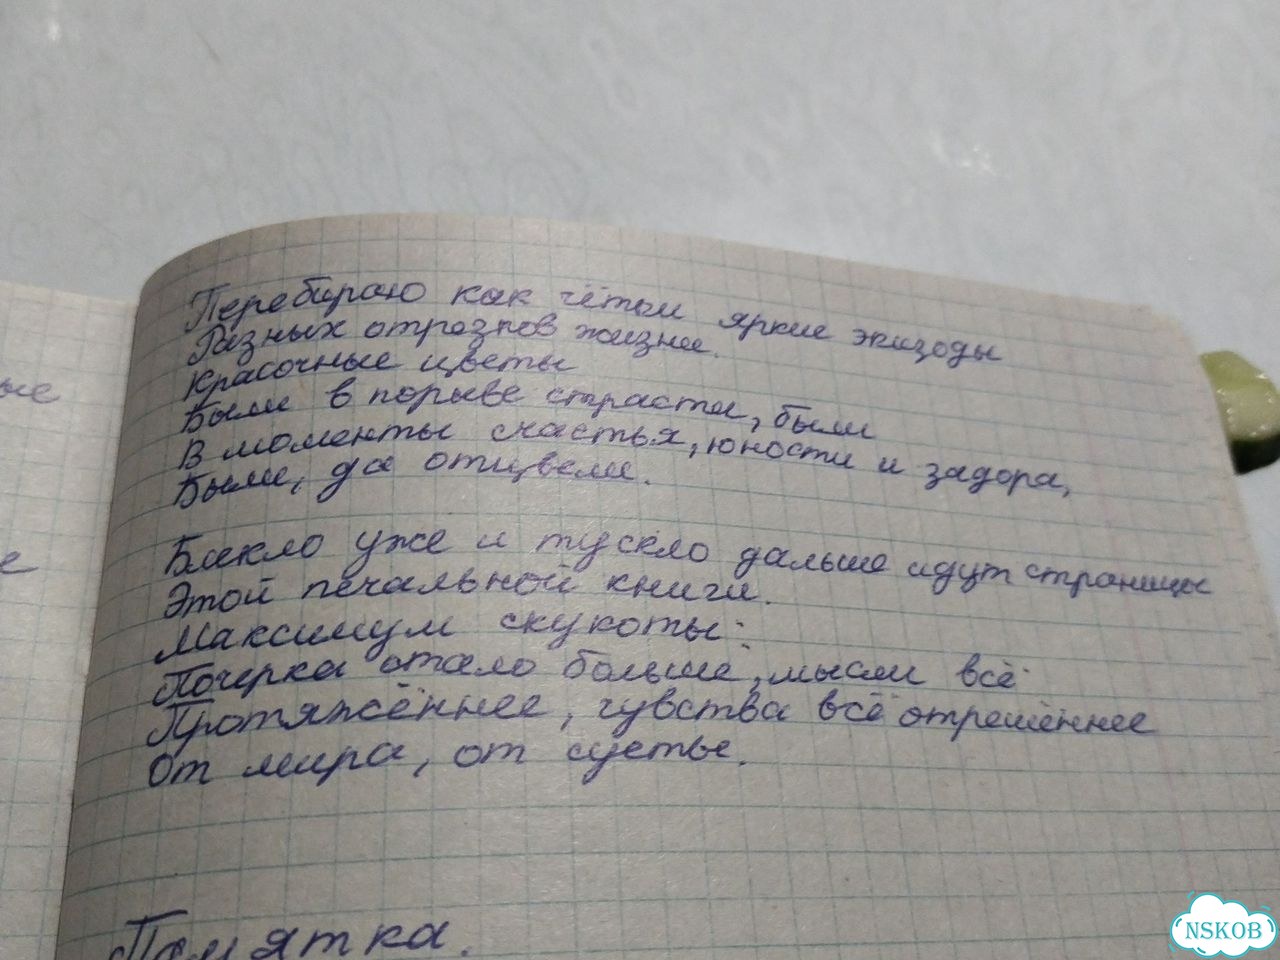 Перебираю как чётки яркие эпизоды
Разных отрезков жизни.
Красочные цветы
Были в порыве страсти, были
В моменты счастья, юности и задора,
Были, да отцвели.
Блекло уже и тускло дальше идут страницы
Этой печальной книги.
Максимум скукоты:
Почерка стало больше, мысли всё
Протяжённее, чувства всё отрешённее
От мира, от суеты.
Памятка.
ые
е
NSKOB